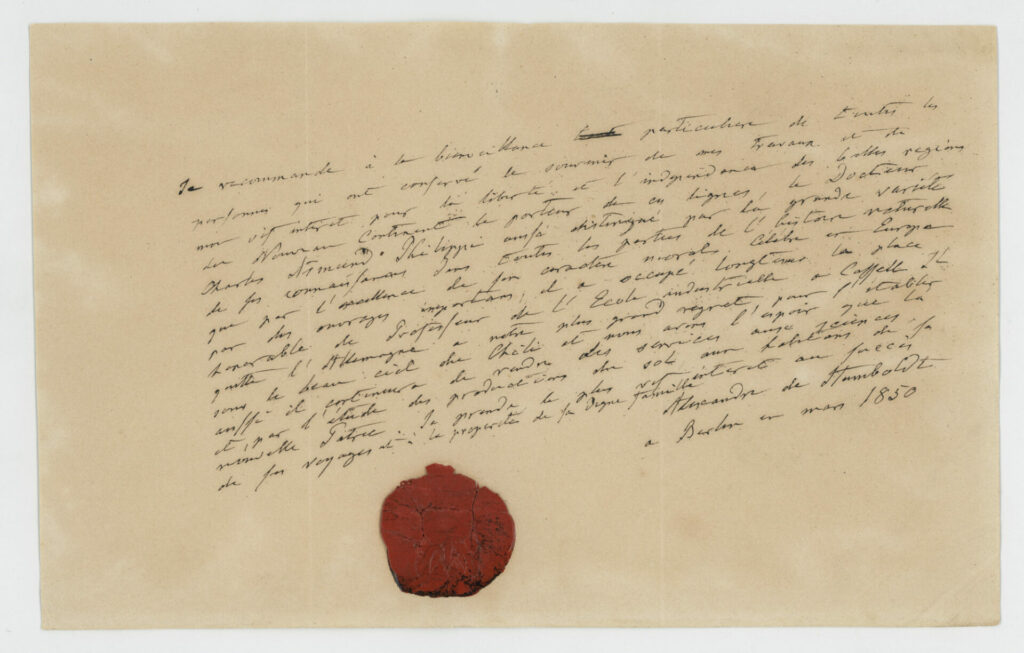 Je recommande à la bienveillance particulière de toutes les
personnes qui ont conservé le souvenir de mes travaux et de
mon vif interet pour la liberté et l'independance des belles regions
du Nouveau Continent le porteur de ces lignes, le Docteur
Charles Philippi aussi distingué par la grande varieté
de ses connaissances dans toutes les parties de l'histoire naturelle
que par l'excellence de son caractère moral. Célèbre en Europe
par des ouvrages importans, il a occupé longtems la place
honorable de Professeur de l'Ecole industrielle a Cassel. Il
quitte l'Allemagne a notre plus grand regret, pour s'etablir
sous le beau ciel du Chili et nous avons l'espoir que là
aussi il continuera de rendre des services aux sciences
et, par l'étude des productions du sol aux habitans de sa
nouvelle Patrie. Je prends le plus vif interêt au succès
de ses voyages et à la prosperité de sa digne famille
Alexandre de Humboldt
a Berlin en mars 1850